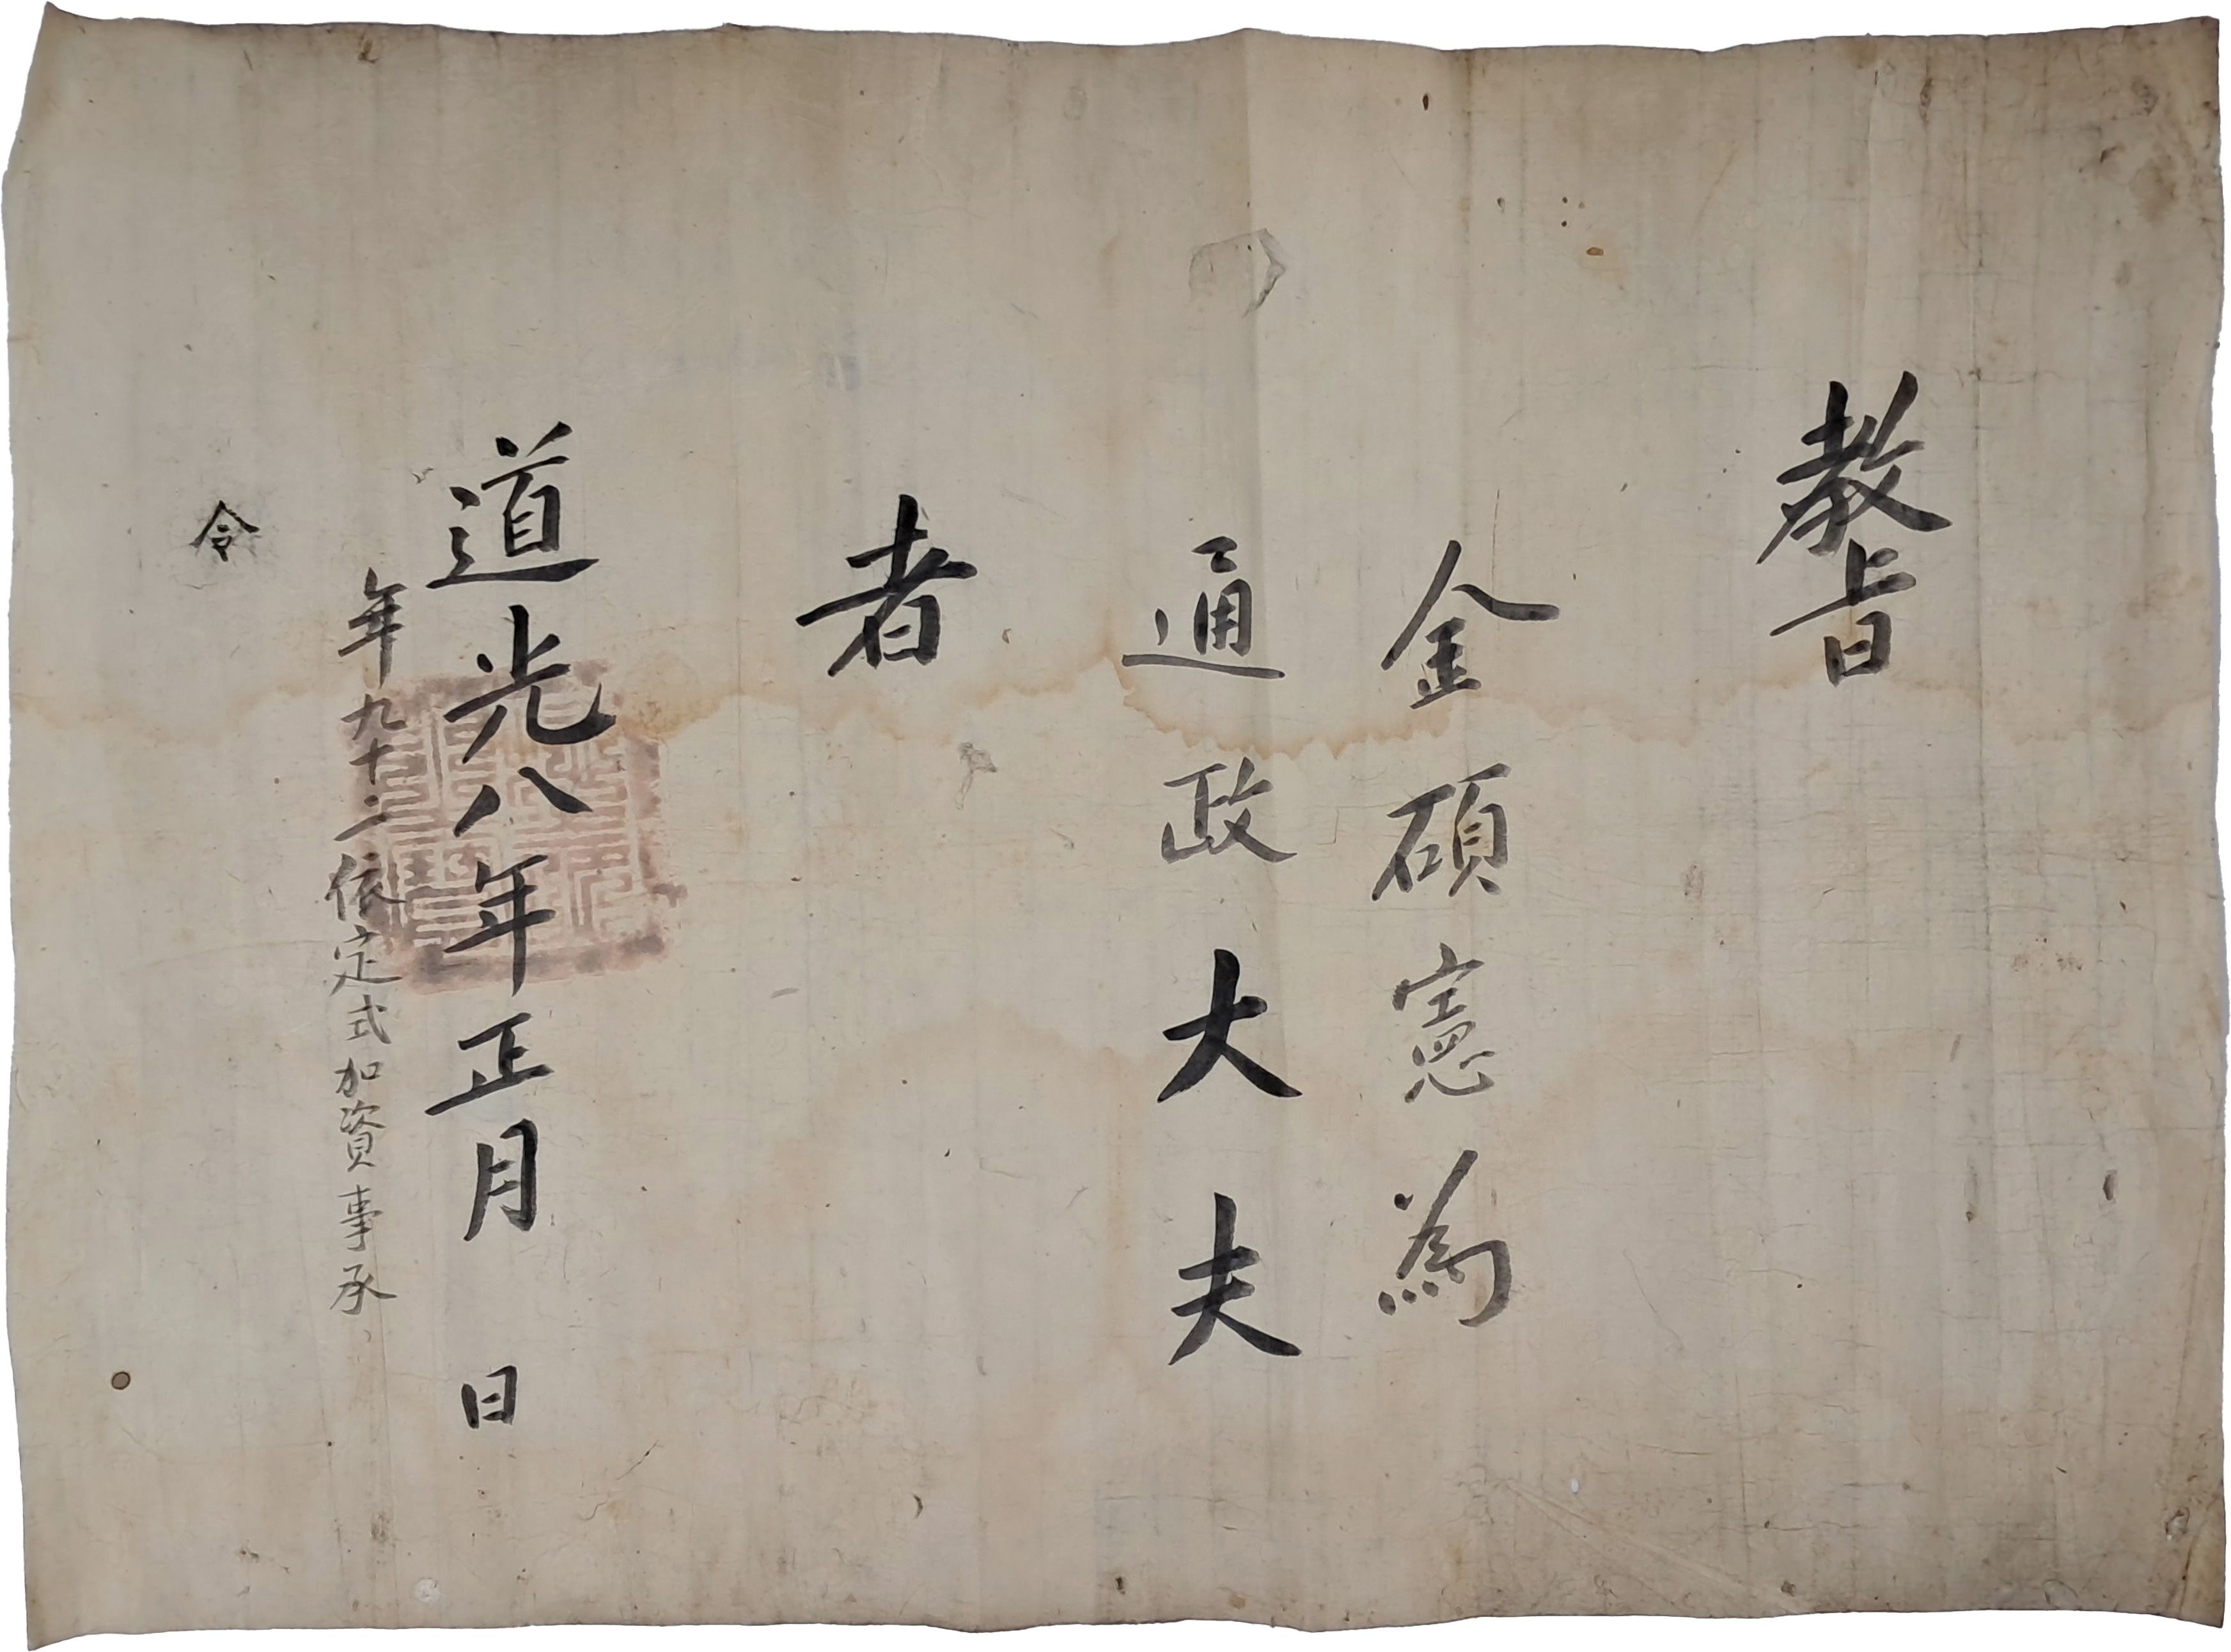 教旨
金碩憲為
通政大夫
者
道光八年正月 日
年九十二依定式加資事承
令